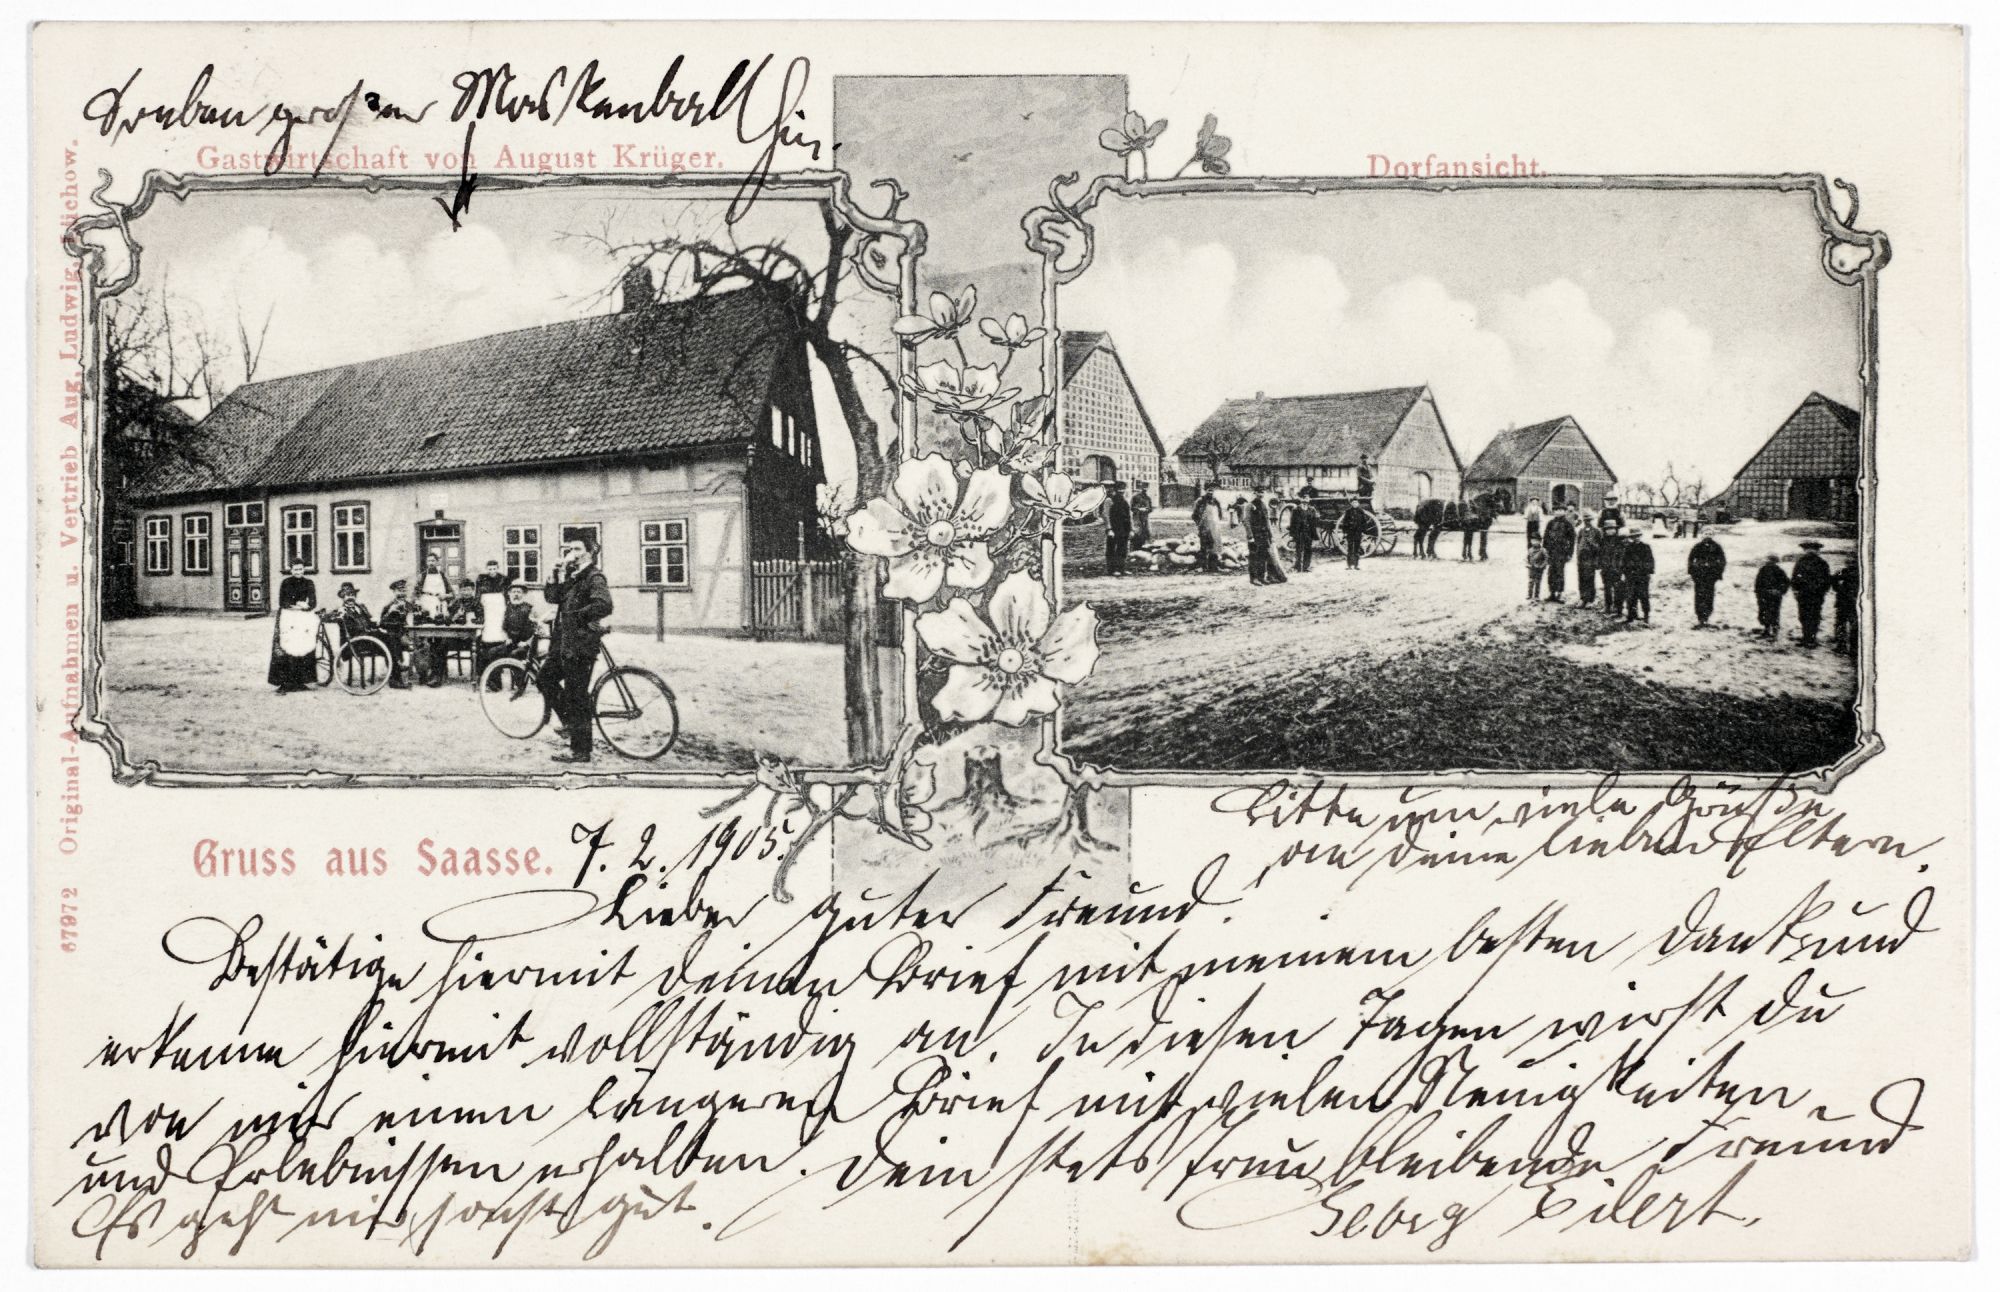 Soeben großer Maskenball hier.
Gastwirtschaft von August Krüger.
Dorfansicht.
67972 Original-Aufnahmen u. Vertrieb Aug. Ludwig, Lüchow.
Bitte um viele Grüße
an deine lieben Eltern.
Gruss aus Saasse. 7. 2. 1905.
Lieber guter Freund.
Bestätige hiermit deinen Brief mit meinem besten Dank und
erkenne hiermit vollständig an. In diesen Tagen wirst du
von mir einen längeren Brief mit vielen Neuigkeiten
und Erlebnissen erhalten. Dein stets treu bleibende Freund
Es geht mir sonst gut. Georg Eilert.